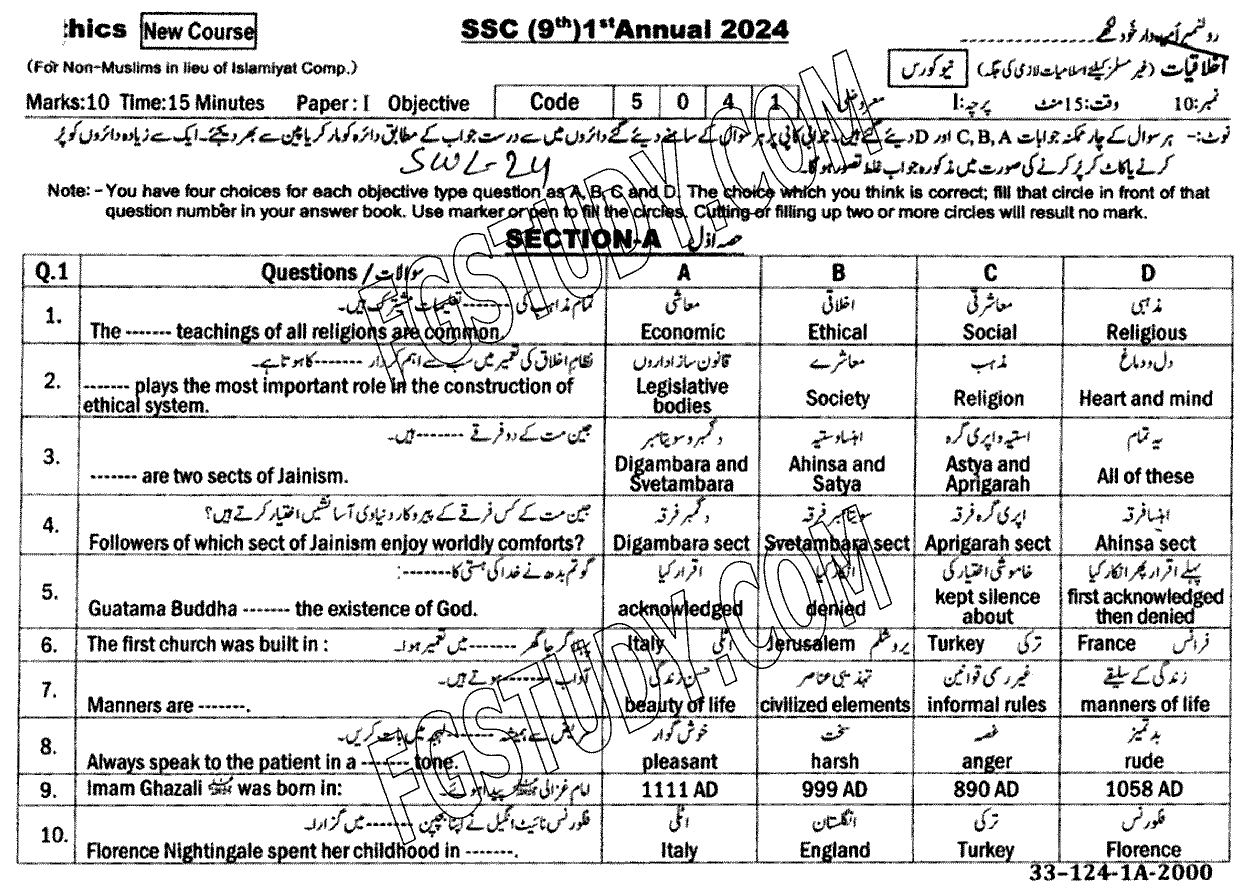 :hics New Course SSC (9th)1st Annual 2024 رولنمبر امیدوار خود لکھے
(For Non-Muslims in lieu of Islamiyat Comp.) نیو کورس اخلاقیات (غیر مسلمز کیلئے اسلامیات لازمی کی جگہ)
Marks:10 Time:15 Minutes Paper: I Objective Code 5 0 4 1 معروضی پرچہ: I وقت: 15 منٹ نمبر: 10
نوٹ:- ہر سوال کے چار ممکنہ جوابات C, B, A اور D دیئے گئے ہیں۔ جوابی کاپی پر ہر سوال کے سامنے دیئے گئے دائروں میں سے درست جواب کے مطابق دائرہ کو مارکر یا پین سے بھر دیجئے۔ ایک سے زیادہ دائروں کو پُر
کرنے یا کاٹ کر پُر کرنے کی صورت میں مذکورہ جواب غلط تصور ہوگا۔
SWL-24
Note: - You have four choices for each objective type question as A, B, C and D. The choice which you think is correct; fill that circle in front of that
question number in your answer book. Use marker or pen to fill the circles. Cutting or filling up two or more circles will result no mark.
SECTION-A حصہ اوّل
Q.1 Questions / سوالات A B C D
1. تمام مذاہب کی ------- تعلیمات مشترک ہیں۔ معاشی اخلاقی معاشرتی مذہبی
The ------- teachings of all religions are common. Economic Ethical Social Religious
2. نظام اخلاق کی تعمیر میں سب سے اہم کردار ------- کا ہوتا ہے۔ قانون ساز اداروں معاشرے مذہب دل و دماغ
------- plays the most important role in the construction of Legislative Society Religion Heart and mind
ethical system. bodies
3. جین مت کے دو فرقے ------- ہیں۔ دگمبر و سویتامبر اہنسا وستیہ استیہ و اپری گرہ یہ تمام
------- are two sects of Jainism. Digambara and Ahinsa and Astya and All of these
Svetambara Satya Aprigarah
4. جین مت کے کس فرقے کے پیروکار دنیاوی آسائشیں اختیار کرتے ہیں؟ دگمبر فرقہ سویتامبر فرقہ اپری گرہ فرقہ اہنسا فرقہ
Followers of which sect of Jainism enjoy worldly comforts? Digambara sect Svetambara sect Aprigarah sect Ahinsa sect
5. گوتم بدھ نے خدا کی ہستی کا -------: اقرار کیا انکار کیا خاموشی اختیار کی پہلے اقرار پھر انکار کیا
Guatama Buddha ------- the existence of God. acknowledged denied kept silence first acknowledged
about then denied
6. The first church was built in : گرجا گھر ------- میں تعمیر ہوا۔ Italy اٹلی Jerusalem یروشلم Turkey ترکی France فرانس
7. آداب ------- ہوتے ہیں۔ حسن زندگی تہذیبی عناصر غیر رسمی قوانین زندگی کے سلیقے
Manners are -------. beauty of life civilized elements informal rules manners of life
8. مریض سے ہمیشہ ------- لہجہ میں بات کریں۔ خوش گوار سخت غصہ بدتمیز
Always speak to the patient in a ------- tone. pleasant harsh anger rude
9. Imam Ghazali was born in: امام غزالی پیدا ہوئے۔ 1111 AD 999 AD 890 AD 1058 AD
10. فلورنس نائیٹ انگیل نے اپنا بچپن ------- میں گزارا۔ اٹلی انگلستان ترکی فلورنس
Florence Nightingale spent her childhood in -------. Italy England Turkey Florence
33-124-1A-2000
FGSTUDY.COM
FGSTUDY.COM